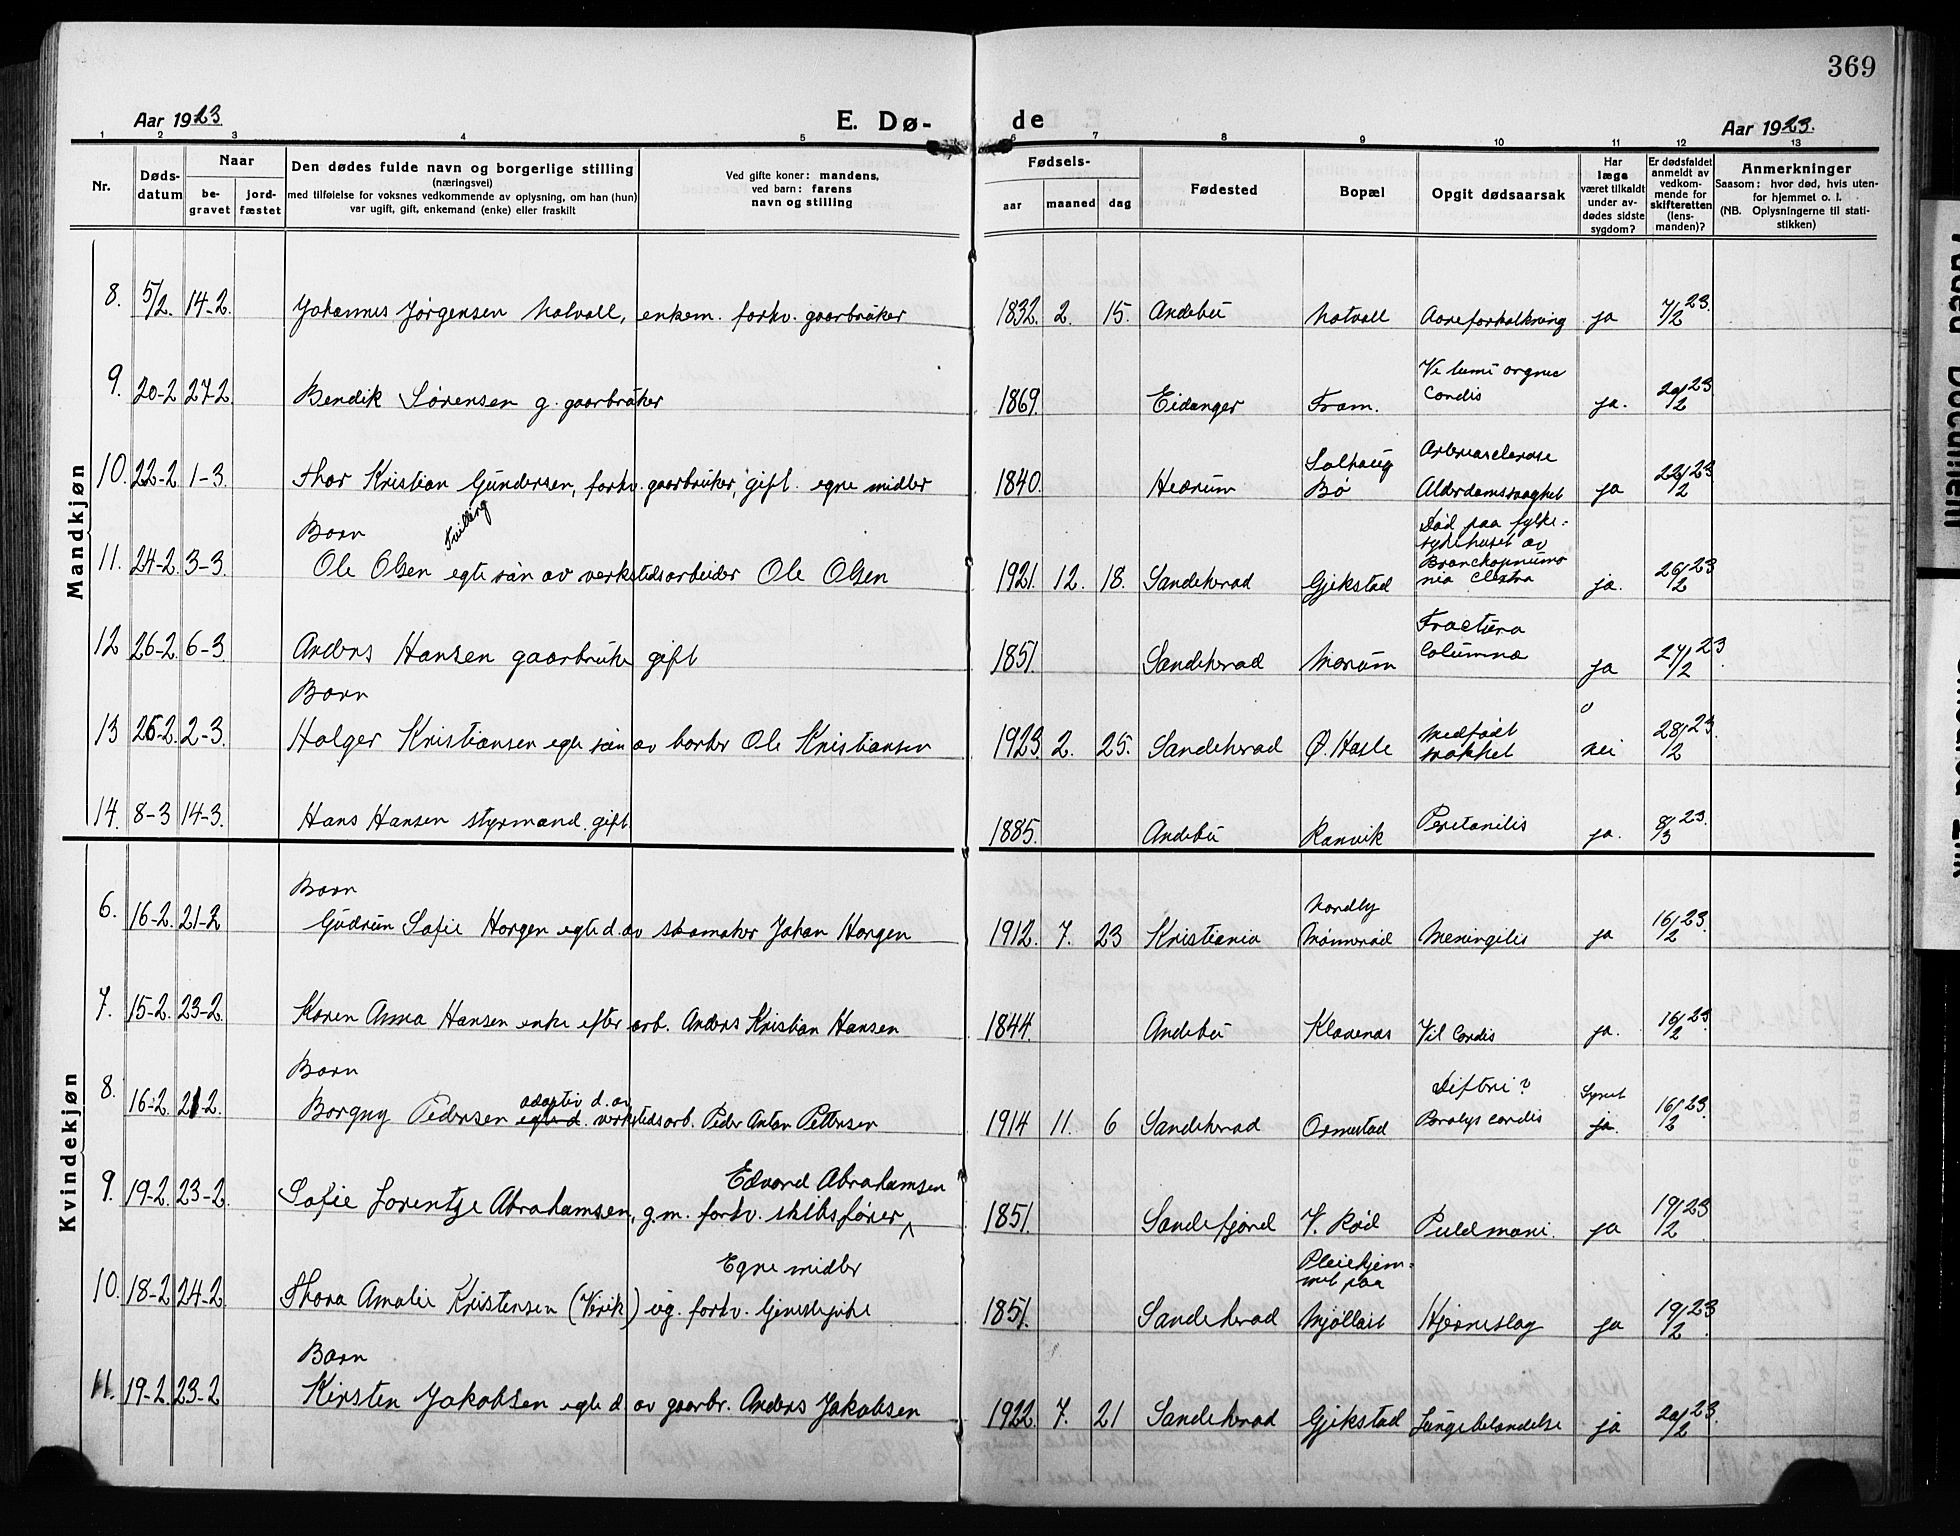 369
Aar 1923 E. Dø- de Aar 1923.
1 2 3 4 5 6 7 8 9 10 11 12 13
Nr.
Døds-
datum
Naar
be-
gravet
jord-
fæstet
Den dødes fulde navn og borgerlige stilling
(næringsvei)
med tilføielse for voksnes vedkommende av oplysning, om han (hun)
var ugift, gift, enkemand (enke) eller fraskilt
Ved gifte koner: mandens,
ved barn: farens
navn og stilling
Fødsels-
aar maaned dag
Fødested
Bopæl
Opgit dødsaarsak
Har
læge
været tilkaldt
under av-
dødes sidste
sygdom?
Er dødsfaldet
anmeldt av
vedkom-
mende for
skifteretten
(lens-
manden)?
Anmerkninger
Saasom: hvor død, hvis uten-
for hjemmet o. l.
(NB. Oplysningerne til stati-
stikken)
Mandkjøn
8. 5/2. 14-2. Johannes Jørgensen Natvall, enkem. forhv. gaarbruker 1832. 2. 15. Andebu Natvall Aareforkalkning ja 7/2 23.
9. 20-2 27-2. Bendik Sørensen g. gaarbruker 1869. Eidanger Fram. Vitium orgnic
cordis ja. 20/2 23
10. 22-2 1-3. Thor Kristian Gundersen, forhv. gaarbruker, gift. egne midler 1840. Hedrum Solhaug
Bø
Alderdomssvaghet ja 22/2 23
Barn Tvilling
11. 24-2. 3-3. Ole Olsen egte søn av verkstedsarbeider Ole Olsen 1921. 12. 18. Sandeherad Gjekstad Død paa fylke-
sykehuset av
Bronchopneumo
nia dextra ja. 26/2 23
12 26-2. 6-3. Anders Hansen gaarbruke gift 1851. Sandeherad Marum Fractura
columna ja 27/2 23.
Barn
13 26-2. 2-3. Holger Kristiansen egte søn av Ole Kristiansen 1923. 2. 25. Sandeherad Ø. Hasle Medfødt
svakhet nei 28/2 23.
14. 8-3 14-3. Hans Hansen styrmand. gift 1885. Andebu Ranvik Peritonitis ja. 8/3 23.
Kvindekjøn
Barn
6. 16-2. 21-2 Gudrun Sofie Horgen egte d. av skomaker Johan Horgen 1912. 7. 23 Kristiania Nordby
Mønnerød Meningitis ja 16/2 23.
7. 15-2. 23-2. Karen Anna Hansen enke efter arb. Anders Kristian Hansen 1844. Andebu Klavenæs Vit cordis ja. 16/2 23
Barn
8. 16-2. 21-2. Borgny Pedersen egte d. adoptiv d. av verkstedsarb. Peder Anton Pettersen 1914 11. 6 Sandeherad Ormestad Difteri?
Paralys cordis Synet
ja. 16/2 23.
Edvard Abrahamsen
9. 19-2. 23-2. Sofie Lorentze Abrahamsen, g.m. forhv. skibsfører 1851. Sandefjord V. Rød ja 19/2 23
Egne midler
10. 18-2. 24-2. Thora Amalie Kristensen (Virik) ug. forhv. tjenestepike 1851. Sandeherad Pleiehjem-
met paa
Mjølløst Hjerneslag ja 19/2 23
Barn
11. 19-2. 23-2 Kirsten Jakobsen egte d. av gaarbr. Anders Jakobsen 1922. 7. 21 Sandeherad Gjekstad Lungebetændelse ja 20/2 23.